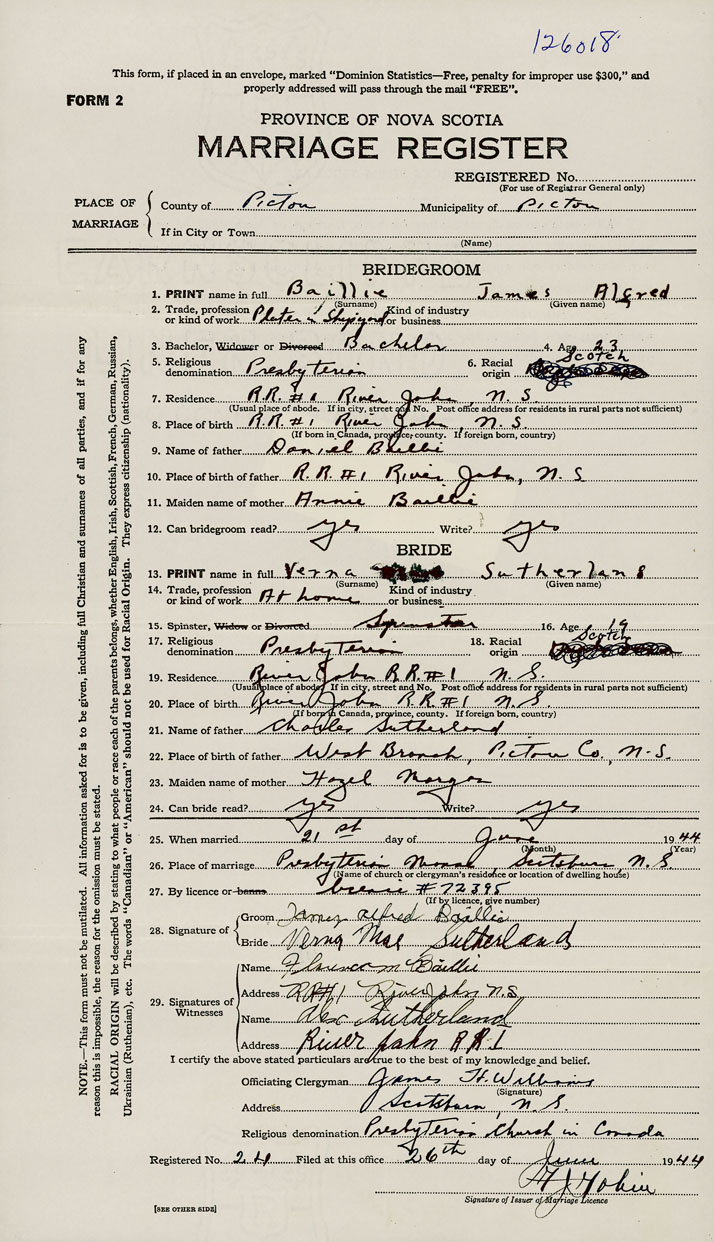 126018
This form, if placed in an envelope, marked "Dominion Statistics—Free, penalty for improper use $300," and
properly addressed will pass through the mail "FREE".
FORM 2
PROVINCE OF NOVA SCOTIA
MARRIAGE REGISTER
REGISTERED No.
(For use of Registrar General only)
PLACE OF MARRIAGE
County of Pictou Municipality of Pictou
If in City or Town
(Name)
BRIDEGROOM
1. PRINT name in full Baillie James Alfred
(Surname) (Given name)
2. Trade, profession or kind of work Plater in Shipyard Kind of industry or business
3. Bachelor, Widower or Divorced Bachelor 4. Age 23
5. Religious denomination Presbyterian 6. Racial origin Scotch
7. Residence R.R. #1 River John, N.S.
(Usual place of abode. If in city, street and No. Post office address for residents in rural parts not sufficient)
8. Place of birth R.R. #1 River John, N.S.
(If born in Canada, province, county. If foreign born, country)
9. Name of father Daniel Baillie
10. Place of birth of father R.R. #1 River John, N.S
11. Maiden name of mother Annie Baillie
12. Can bridegroom read? yes Write? yes
BRIDE
13. PRINT name in full Verna Sutherland
(Surname) (Given name)
14. Trade, profession or kind of work At home Kind of industry or business
15. Spinster, Widow or Divorced Spinster 16. Age 19
17. Religious denomination Presbyterian 18. Racial origin Scotch
19. Residence River John R.R. #1 N.S.
(Usual place of abode. If in city, street and No. Post office address for residents in rural parts not sufficient)
20. Place of birth River John R.R. #1 N.S.
(If born in Canada, province, county. If foreign born, country)
21. Name of father Charles Sutherland
22. Place of birth of father West Branch, Pictou Co., N.S.
23. Maiden name of mother Hazel
24. Can bride read? yes Write? yes
25. When married 21st day of June 1944
(Month) (Year)
26. Place of marriage Presbyterian Manse, Scotsburn, N.S.
(Name of church or clergyman's residence or location of dwelling house)
27. By licence or banns license #72395
(If by licence, give number)
28. Signature of
Groom James Alfred Baillie
Bride Verna Mae Sutherland
29. Signatures of Witnesses
Name Florence M Baillie
Address RR#1 River John N.S
Name Alex Sutherland
Address River John R R. 1
I certify the above stated particulars are true to the best of my knowledge and belief.
Officiating Clergyman James H. Williams
(Signature)
Address Scotsburn, N.S.
Religious denomination Presbyterian Church in Canada
Registered No. 24 Filed at this office 26th day of June 1944
Signature of Issuer of Marriage Licence
[SEE OTHER SIDE]
NOTE.—This form must not be mutilated. All information asked for is to be given, including full Christian and surnames of all parties, and if for any
reason this is impossible, the reason for the omission must be stated.
RACIAL ORIGIN will be described by stating to what people or race each of the parents belongs, whether English, Irish, Scottish, French, German, Russian,
Ukrainian (Ruthenian), etc. The words "Canadian" or "American" should not be used for Racial Origin. They express citizenship (nationality).